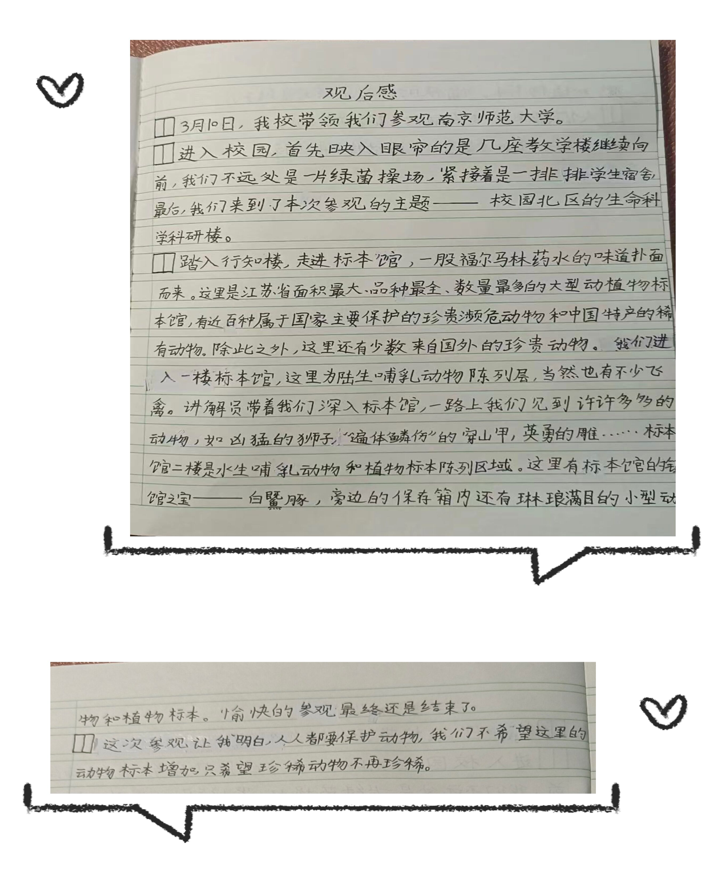 观后感
3月10日，我校带领我们参观南京师范大学。
进入校园，首先映入眼帘的是几座教学楼继续向
前，我们不远处是一片绿茵操场，紧接着是一排排学生宿舍，
最后，我们来到了本次参观的主题——校园北区的生命科
学科研楼。
踏入行知楼，走进标本馆，一股福尔马林药水的味道扑面
而来。这里是江苏省面积最大、品种最全、数量最多的大型动植物标
本馆，有近百种属于国家主要保护的珍贵濒危动物和中国特产的稀
有动物。除此之外，这里还有少数来自国外的珍贵动物。我们进
入一楼标本馆，这里为陆生哺乳动物陈列层，当然也有不少飞
禽。讲解员带着我们深入标本馆，一路上我们见到许许多多的
动物，如凶猛的狮子，“遍体鳞伤”的穿山甲，英勇的雕……标本
馆二楼是水生哺乳动物和植物标本陈列区域。这里有标本馆的
馆之宝——白鱀豚，旁边的保存箱内还有琳琅满目的小型动
物和植物标本。愉快的参观最终还是结束了。
这次参观让我明白，人人都要保护动物，我们不希望这里的
动物标本增加，只希望珍稀动物不再珍稀。